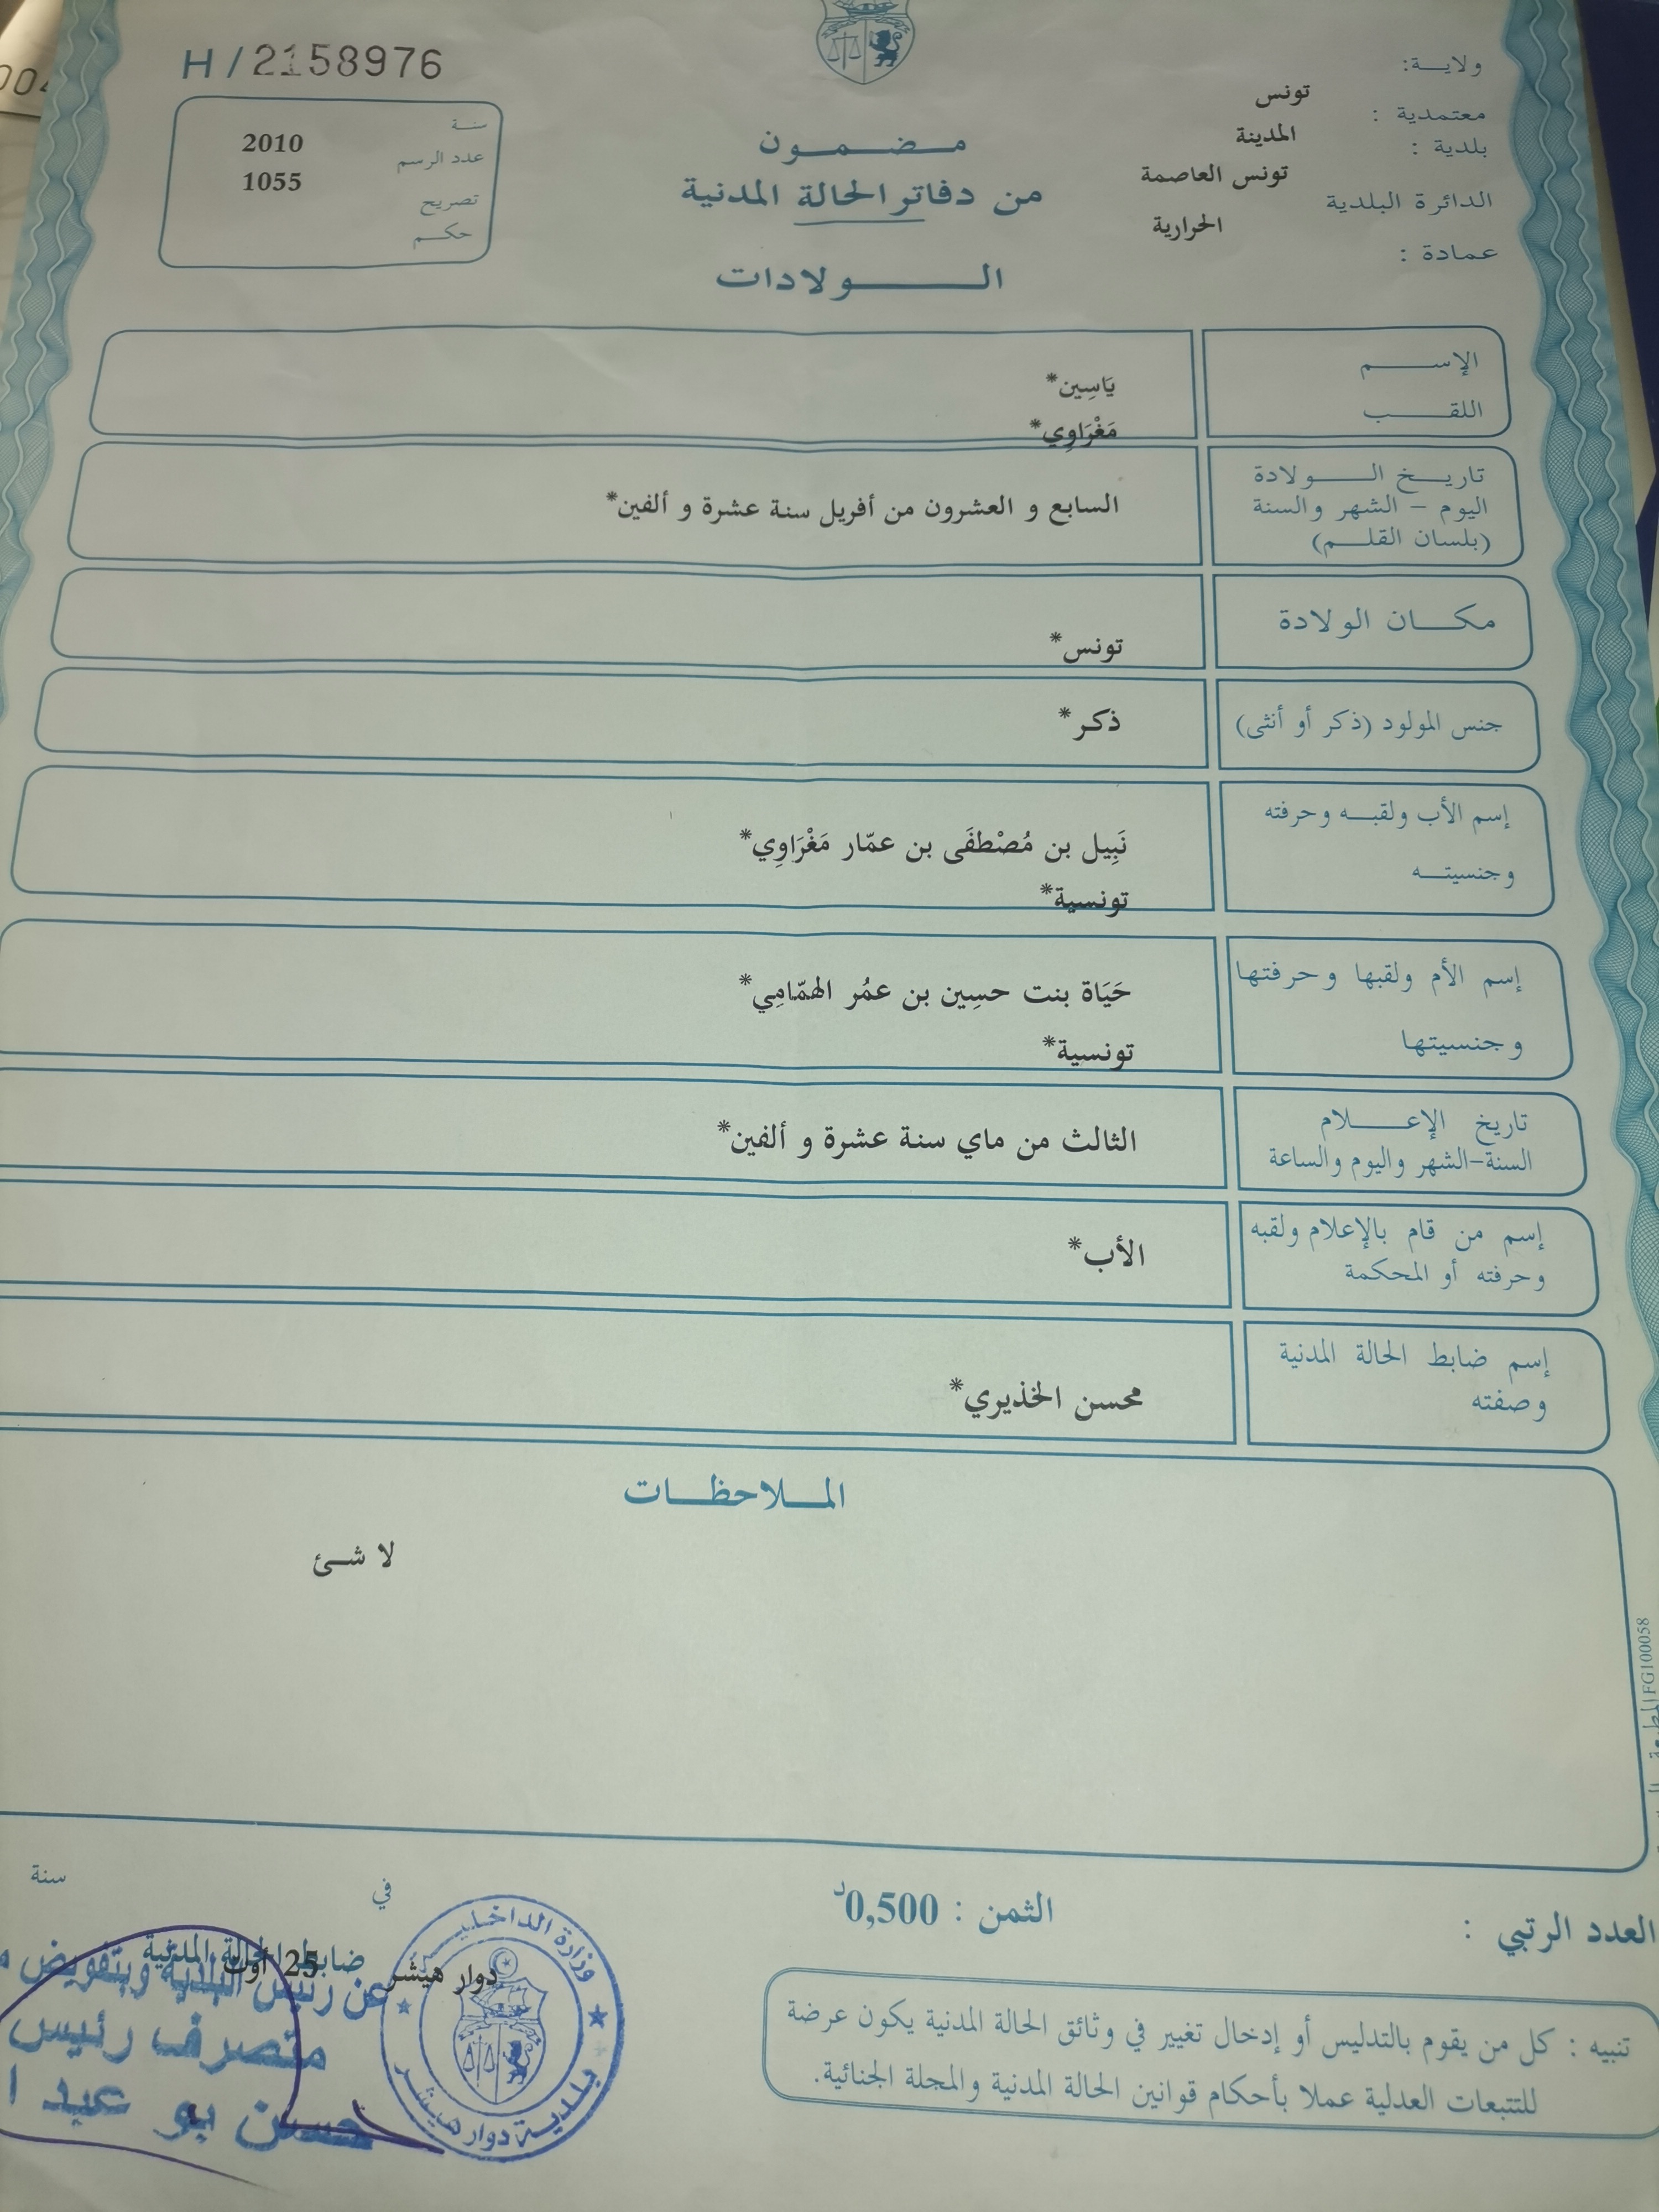 H/2158976
سنة
2010
عدد الرسم
1055
تصريح
حكم
مضمون
من دفاتر الحالة المدنية
الولادات
ولاية:
تونس
معتمدية :
المدينة
بلدية :
تونس العاصمة
الدائرة البلدية
الحرارية
عمادة :
الإسم
يَاسِين*
اللقب
مَغْرَاوِي*
تاريخ الولادة
اليوم – الشهر والسنة
(بلسان القلم)
السابع و العشرون من أفريل سنة عشرة و ألفين*
مكان الولادة
تونس*
جنس المولود (ذكر أو أنثى)
ذكر*
إسم الأب ولقبه وحرفته
وجنسيته
نَبِيل بن مُصْطفَى بن عمّار مَغْرَاوِي*
تونسية*
إسم الأم ولقبها وحرفتها
وجنسيتها
حَيَاة بنت حسِين بن عمُر الهمّامِي*
تونسية*
تاريخ الإعلام
السنة–الشهر واليوم والساعة
الثالث من ماي سنة عشرة و ألفين*
إسم من قام بالإعلام ولقبه
وحرفته أو المحكمة
الأب*
إسم ضابط الحالة المدنية
وصفته
محسن الخذيري*
الملاحظات
لا شئ
FG100058
العدد الرتبي :
الثمن : 0,500د
في
سنة
دوار هيشر
25 أوت
ضابط الحالة المدنية
عن رئيس البلدية وبتفويض
متصرف رئيس
حسن بو عبد
وزارة الداخلية
بلدية دوار هيشر
تنبيه : كل من يقوم بالتدليس أو إدخال تغيير في وثائق الحالة المدنية يكون عرضة
للتتبعات العدلية عملا بأحكام قوانين الحالة المدنية والمجلة الجنائية.